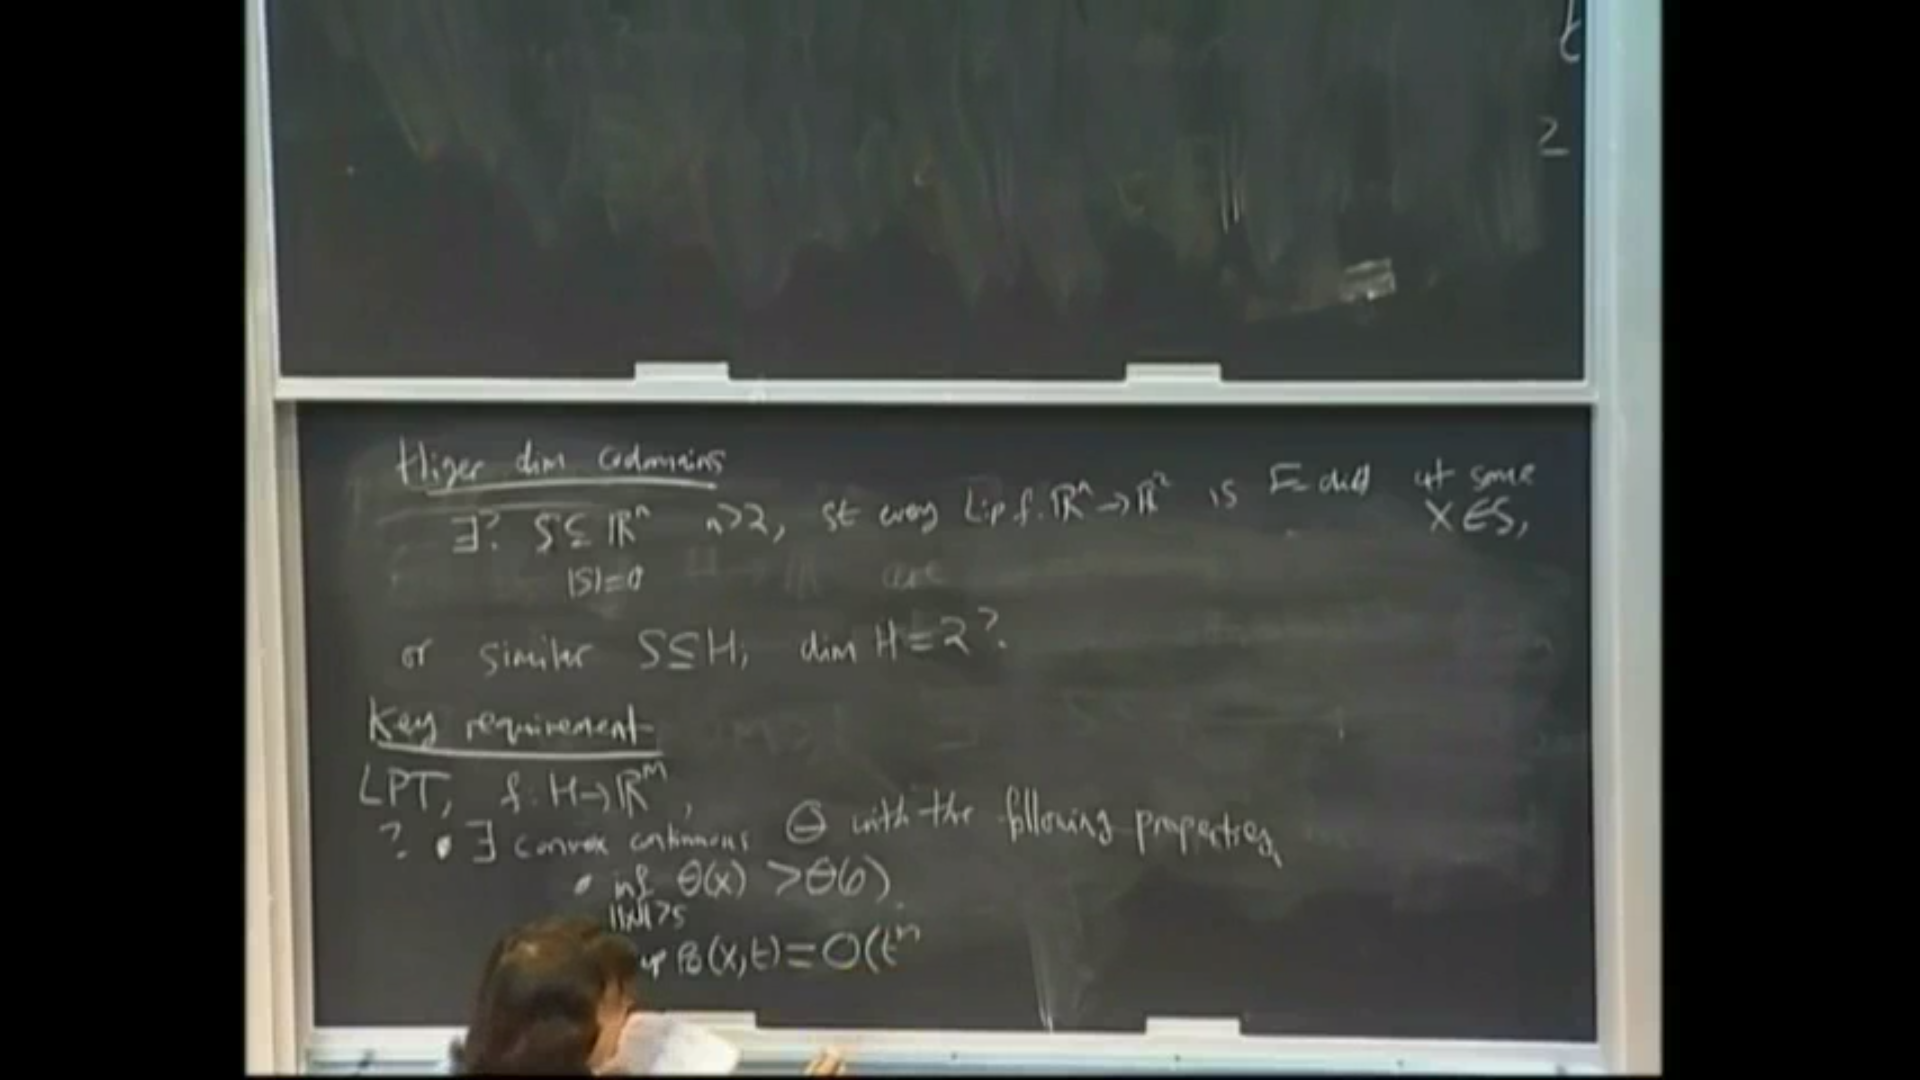 t
≥
Higer dim codomains
∃? S⊆ℝⁿ n>2, st every Lip f:ℝⁿ→ℝ² is F-diff at some x∈S,
|S|=0
or similar S⊆H, dim H=2?.
Key requirement
LPT, f:H→ℝᵐ,
? • ∃ convex continuous Θ with the following properties,
• inf Θ(x) >Θ(0).
||x||>s
(x,t)=O(tⁿ